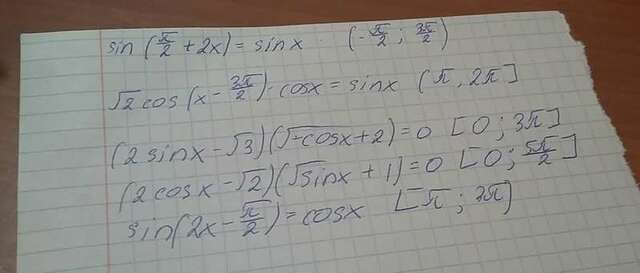 sin (π/2 + 2x) = sinx (-π/2 ; 3π/2)
√2 cos (x - 3π/2) · cosx = sinx (π, 2π]
(2 sinx - √3)(√-cosx + 2) = 0 [0 ; 3π]
(2 cosx - √2)(√sinx + 1) = 0 [0 ; 5π/2]
sin(2x - π/2) = cosx [π ; 3π]